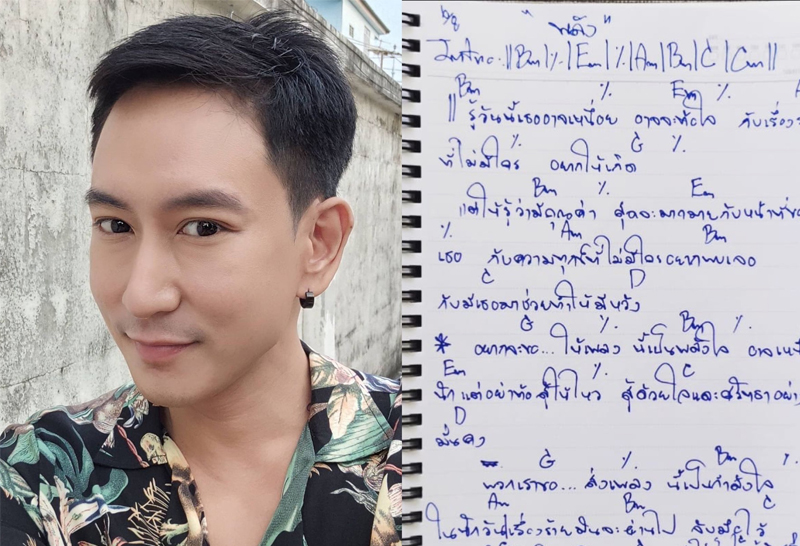 "พลัง"
Intro : || Bm | ٪. | Em | ٪. | Am | Bm | C | Cm ||
Bm ٪. Em ٪. A
|| รู้วันนี้เธออาจเหนื่อย อาจจะท้อใจ กับเรื่อง
٪. G ٪.
ที่ไม่มีใคร อยากให้เกิด
Bm ٪. Em
แต่ให้รู้ว่ามีคุณค่า สุดจะมากมายกับหน้าที่
٪. Am Bm
เธอ กับความทุกข์ที่ไม่มีใครอยากพบเจอ
C D
กับมีเธอมาช่วยทำให้มีหวัง
G ٪. Bm ٪.
* อยากจะขอ... ให้เพลง นี้เป็นพลังใจ อาจ
Em ٪. C
แต่อย่าท้อสู้ให้ไหว สู้ด้วยใจและศรัทธาอย่าง
D
มั่นคง
G ٪. Bm ٪.
พวกเราขอ... ส่งเพลง นี้เป็นกำลังใจ
Am Bm C
วันเรื่องร้ายมันจะผ่านไป